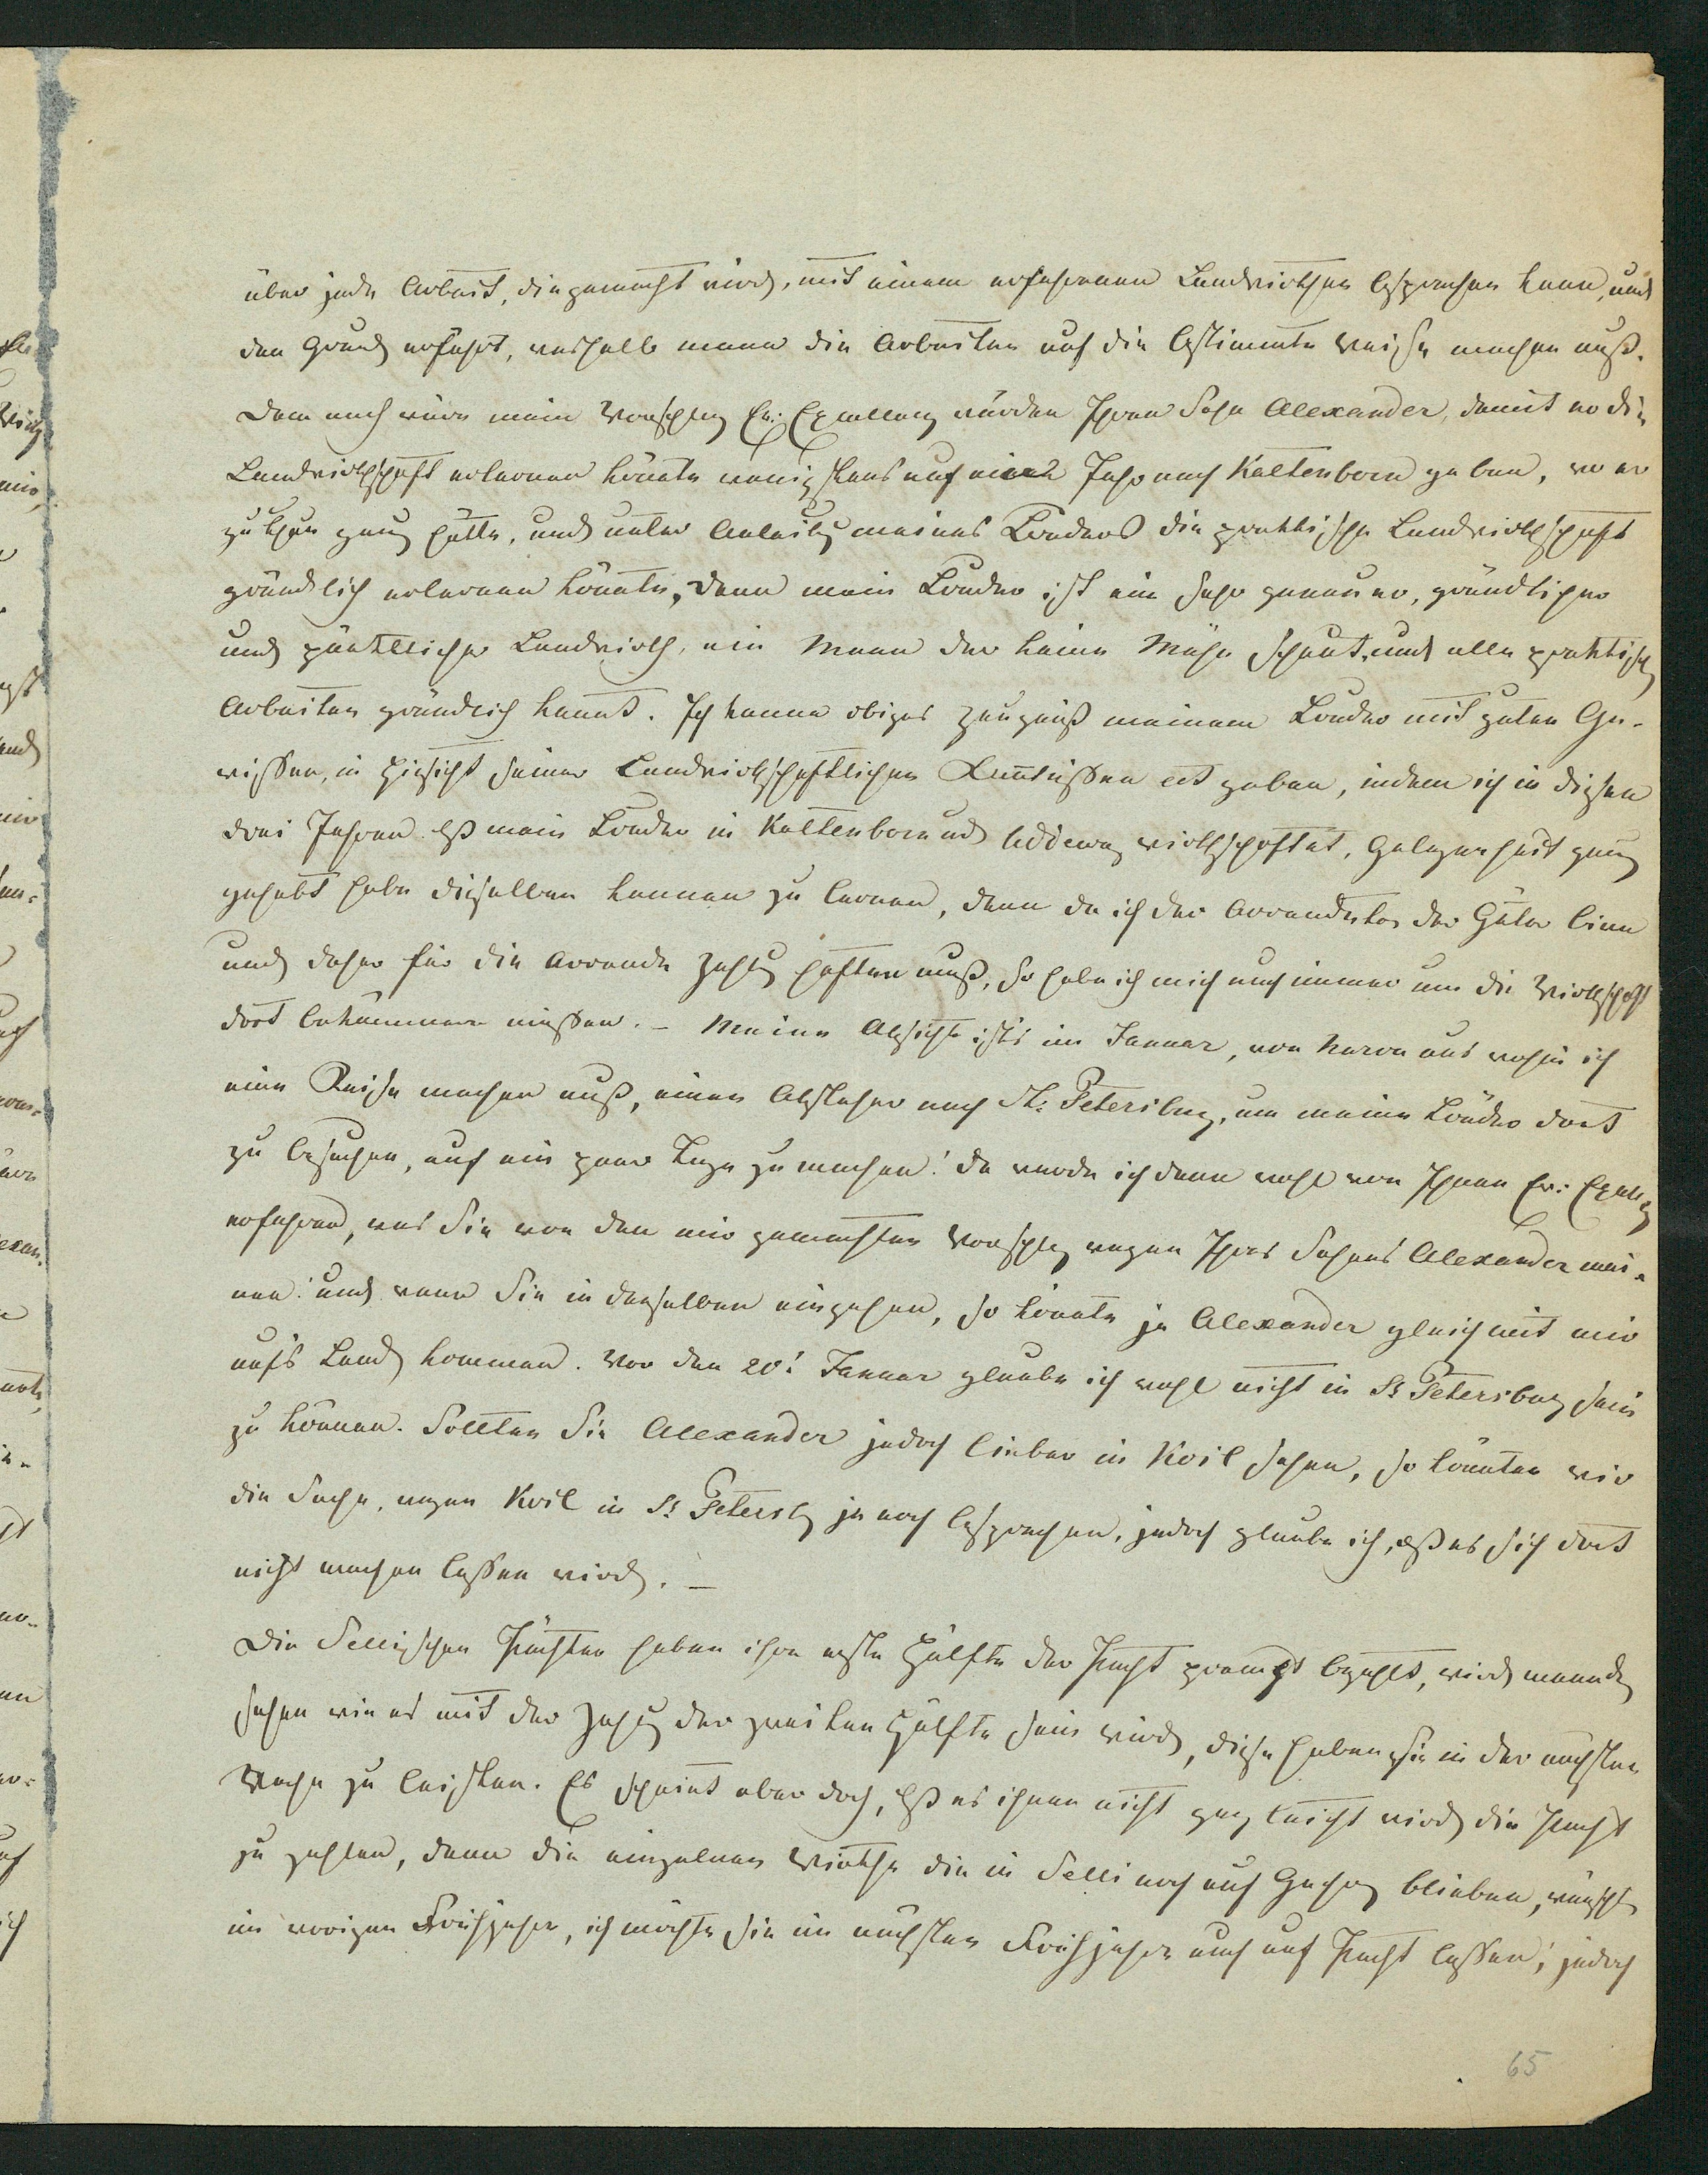 über jede Arbeit, die gemacht wird, mit einem erfahrenen Landwirthen besprechen kann, und
den Grund erfährt, weshalb mann die Arbeiten auf die bestimmte Weise machen muß.
Dem nach wäre mein Vorschlag Ew: Excellenz würden Ihren Sohn Alexander, damit er die
Landwirthschaft erlernen könnte wenigstens auf ein Jahr nach Kaltenborn geben, wo er
zu thun genug hätte, und unter Anleitung meines Bruders die praktische Landwirthschaft
gründlich erlernen könnte, denn mein Bruder ist ein sehr genauer, gründlicher
und pünktlicher Landwirth, ein Mann der keine Mühe scheut, und alle praktischen
Arbeiten gründlich kennt. Ich kann obiges Zeugniß meinem Bruder mit guten Ge-
wissen, in Hinsicht seiner Landwirthschaftlichen Kenntnissen geben, indem ich in diesen
drei Jahren daß mein Bruder in Kaltenborn und Addewa, wirthschaftet, Gelegenheit genug
gehabt habe dieselben kennen zu lernen, denn da ich der Arrendator der Güter binn
und daher für die Arrende Zahlung haften muß, so habe ich mich auch immer um die Wirthschaft
dort bekümmern müssen. – Meine Absicht ist's im Januar, von Narva aus wohin ich
eine Reise machen muß, einen Abstecher nach St: Petersburg, um meine Brüder dort
zu besuchen, auf ein paar Tage zu machen! da werde ich denn wohl von Ihnen Ew: Excellenz
erfahren, was Sie von den mir gemachten Vorschlag wegen Ihres Sohnes Alexander mei-
nen! und wenn Sie in denselben eingehen, so könnte ja Alexander gleich mit mir
auf's Land kommen. Vor den 20! Januar glaube ich wohl nicht in St Petersburg sein
zu können. Sollten Sie Alexander jedoch lieber in Koil sehen, so könnten wir
die Sache, wegen Koil in St Petersb ja noch besprechen, jedoch glaube ich, daß es sich dort
nicht machen lassen wird. –
Die Sellischen Pächter haben ihre erste Hälfte der Pacht prompt bezahlt, wird mann
sehen wie es mit der Zahlung der zweiten Hälfte sein wird, diese haben sie in der nächsten
Woche zu leisten. Es scheint aber doch, daß es ihnen nicht ganz leicht wird die Pacht
zu zahlen, denn die einzelnen Wirthe die in Selli noch auf Gehorch blieben, wünschten
im vorigen Frühjahr, ich möchte sie im nächsten Frühjahre auch auf Pacht lassen, jedoch
65